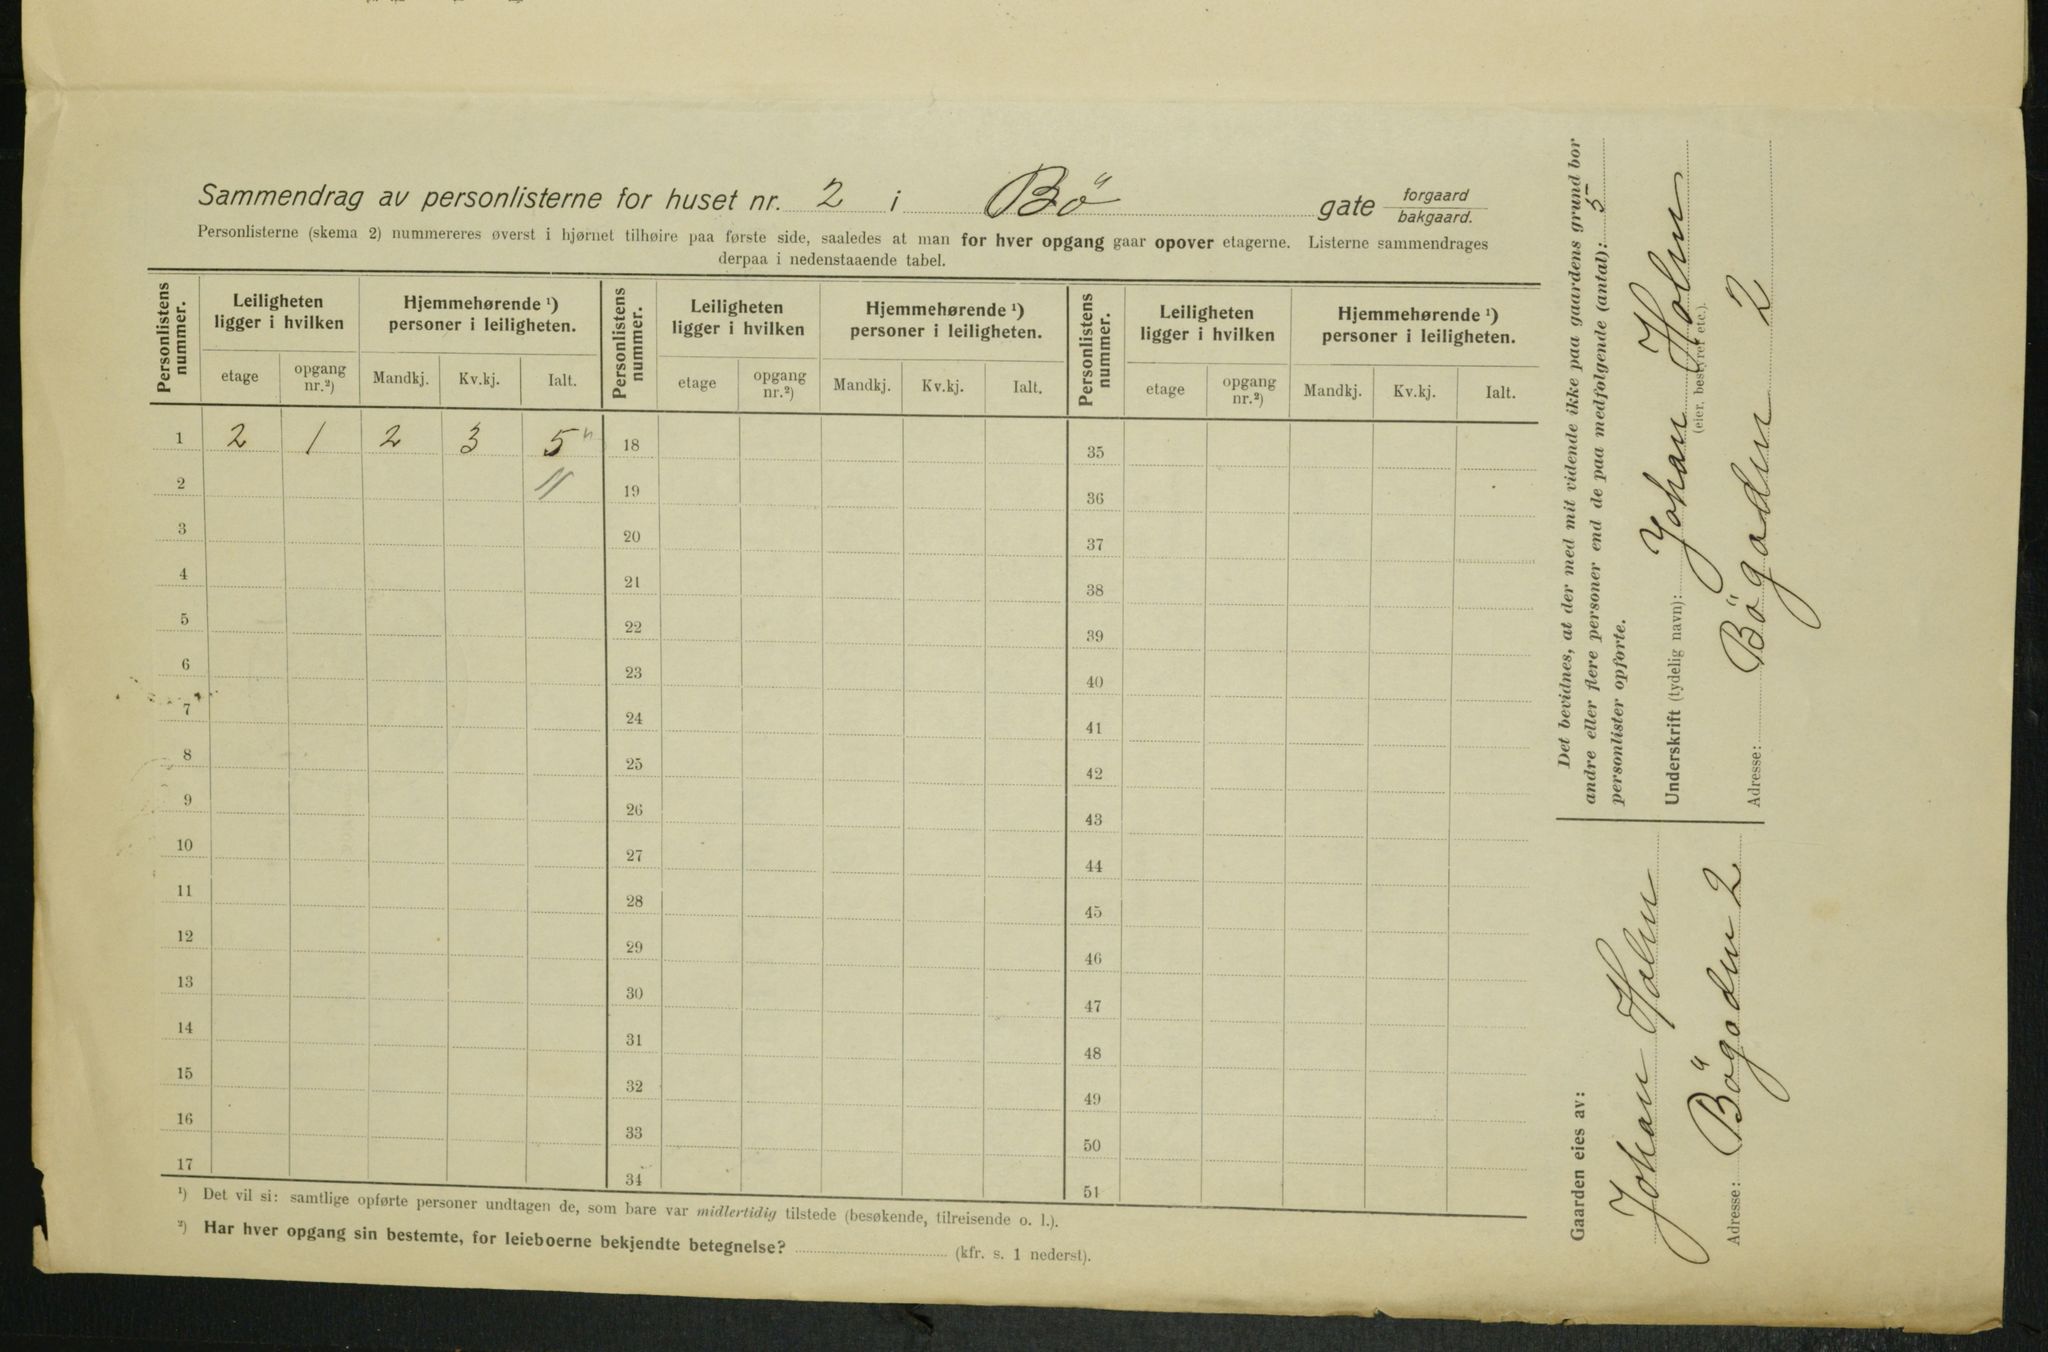 Sammendrag av personlisterne for huset nr. 2 i Bö gate forgaard bakgaard.
Personlisterne (skema 2) nummereres øverst i hjørnet tilhøire paa første side, saaledes at man for hver opgang gaar opover etagerne. Listerne sammendrages
derpaa i nedenstaaende tabel.
Personlistens nummer. Leiligheten ligger i hvilken Hjemmehørende ¹) personer i leiligheten. Personlistens nummer. Leiligheten ligger i hvilken Hjemmehørende ¹) personer i leiligheten. Personlistens nummer. Leiligheten ligger i hvilken Hjemmehørende ¹) personer i leiligheten.
etage opgang nr.²) Mandkj. Kv.kj. Ialt. etage opgang nr.²) Mandkj. Kv.kj. Ialt. etage opgang nr.²) Mandkj. Kv.kj. Ialt.
1 2 1 2 3 5 " 18 35
2 19 36
3 20 37
4 21 38
5 22 39
6 23 40
7 24 41
8 25 42
9 26 43
10 27 44
11 28 45
12 29 46
13 30 47
14 31 48
15 32 49
16 33 50
17 34 51
¹) Det vil si: samtlige opførte personer undtagen de, som bare var midlertidig tilstede (besøkende, tilreisende o. l.).
²) Har hver opgang sin bestemte, for leieboerne bekjendte betegnelse? (kfr. s. 1 nederst).
Det bevidnes, at der med mit vidende ikke paa gaardens grund bor
andre eller flere personer end de paa medfølgende (antal): 5
personlister opførte.
Underskrift (tydelig navn): Johan Holm
(eier, bestyrer etc.).
Adresse: Bögaden 2
Gaarden eies av:
Johan Holm
Adresse: Bögaden 2